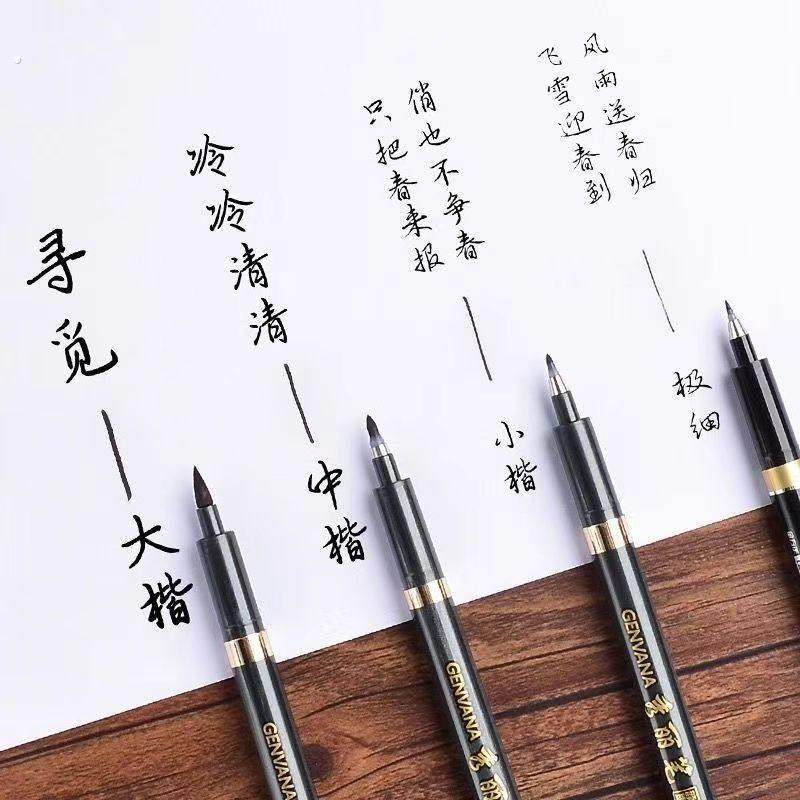 寻觅
大楷
冷冷清清
中楷
俏也不争春
只把春来报
小楷
风雨送春归
飞雪迎春到
极细
GENVANA
GENVANA 秀丽
GENVANA 秀丽笔